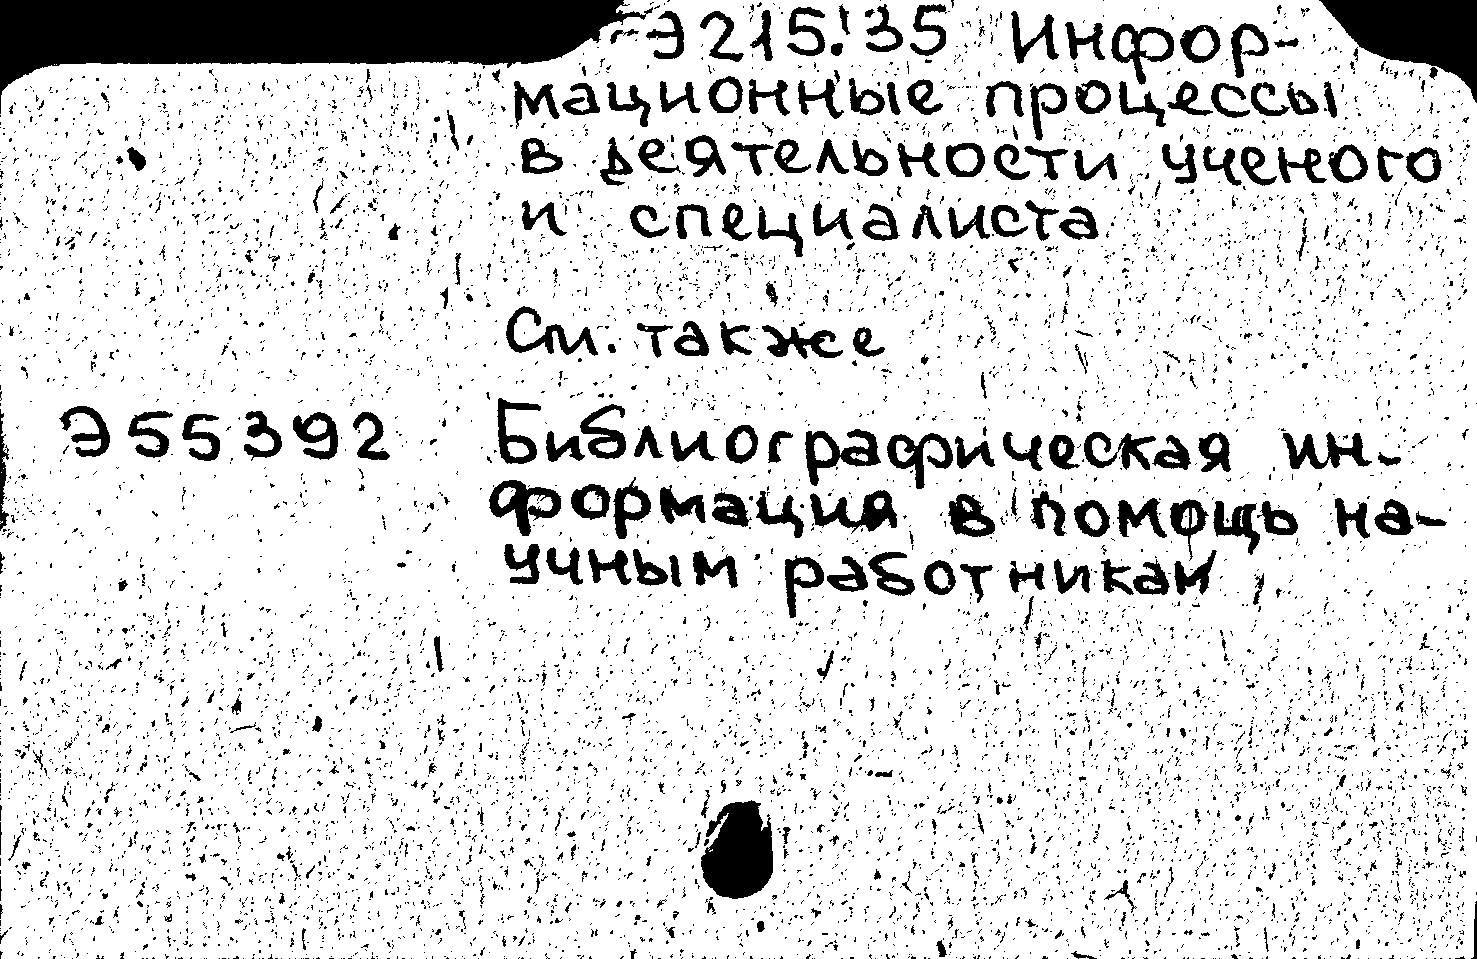 Э215.'35 Инфор-
мационные процессы
в деятельности ученого
и специалиста
См. также
Э55392 Библиографическая ин-
формация в помощь на-
учным работникам